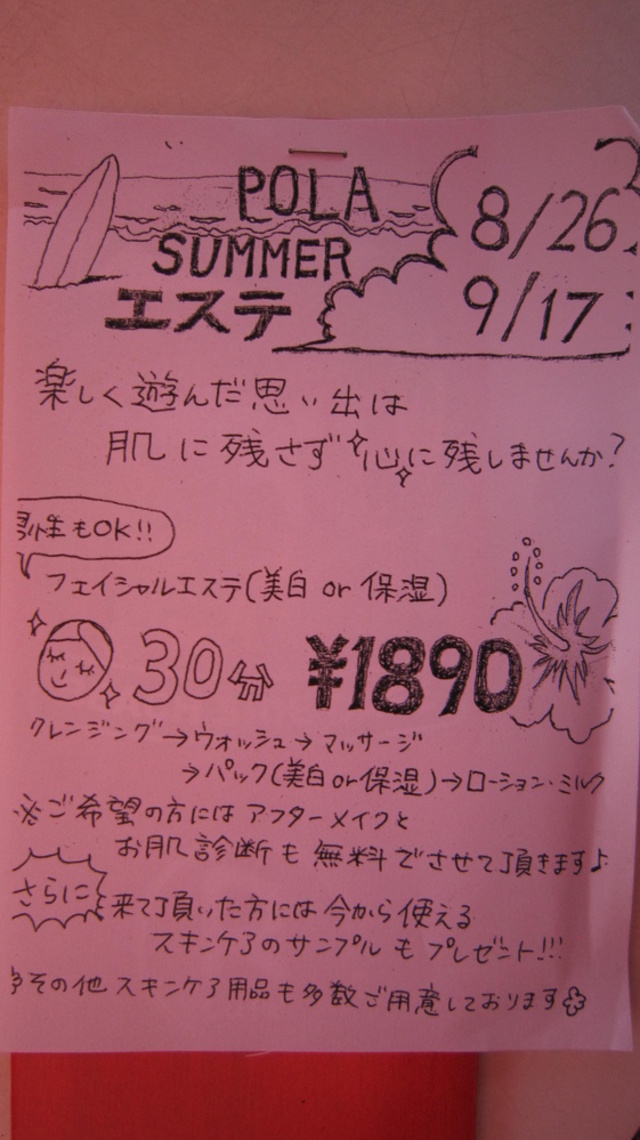 POLA
SUMMER
エステ
8/26
9/17
楽しく遊んだ思い出は
肌に残さず心に残しませんか?
男性もOK!!
フェイシャルエステ(美白 or 保湿)
30分 ¥1890
クレンジング→ウォッシュ→マッサージ
→パック(美白or保湿)→ローション・ミルク
※ご希望の方にはアフターメイクと
お肌診断も無料でさせて頂きます♪
さらに
来て頂いた方には今から使える
スキンケアのサンプルもプレゼント!!!
その他スキンケア用品も多数ご用意しております